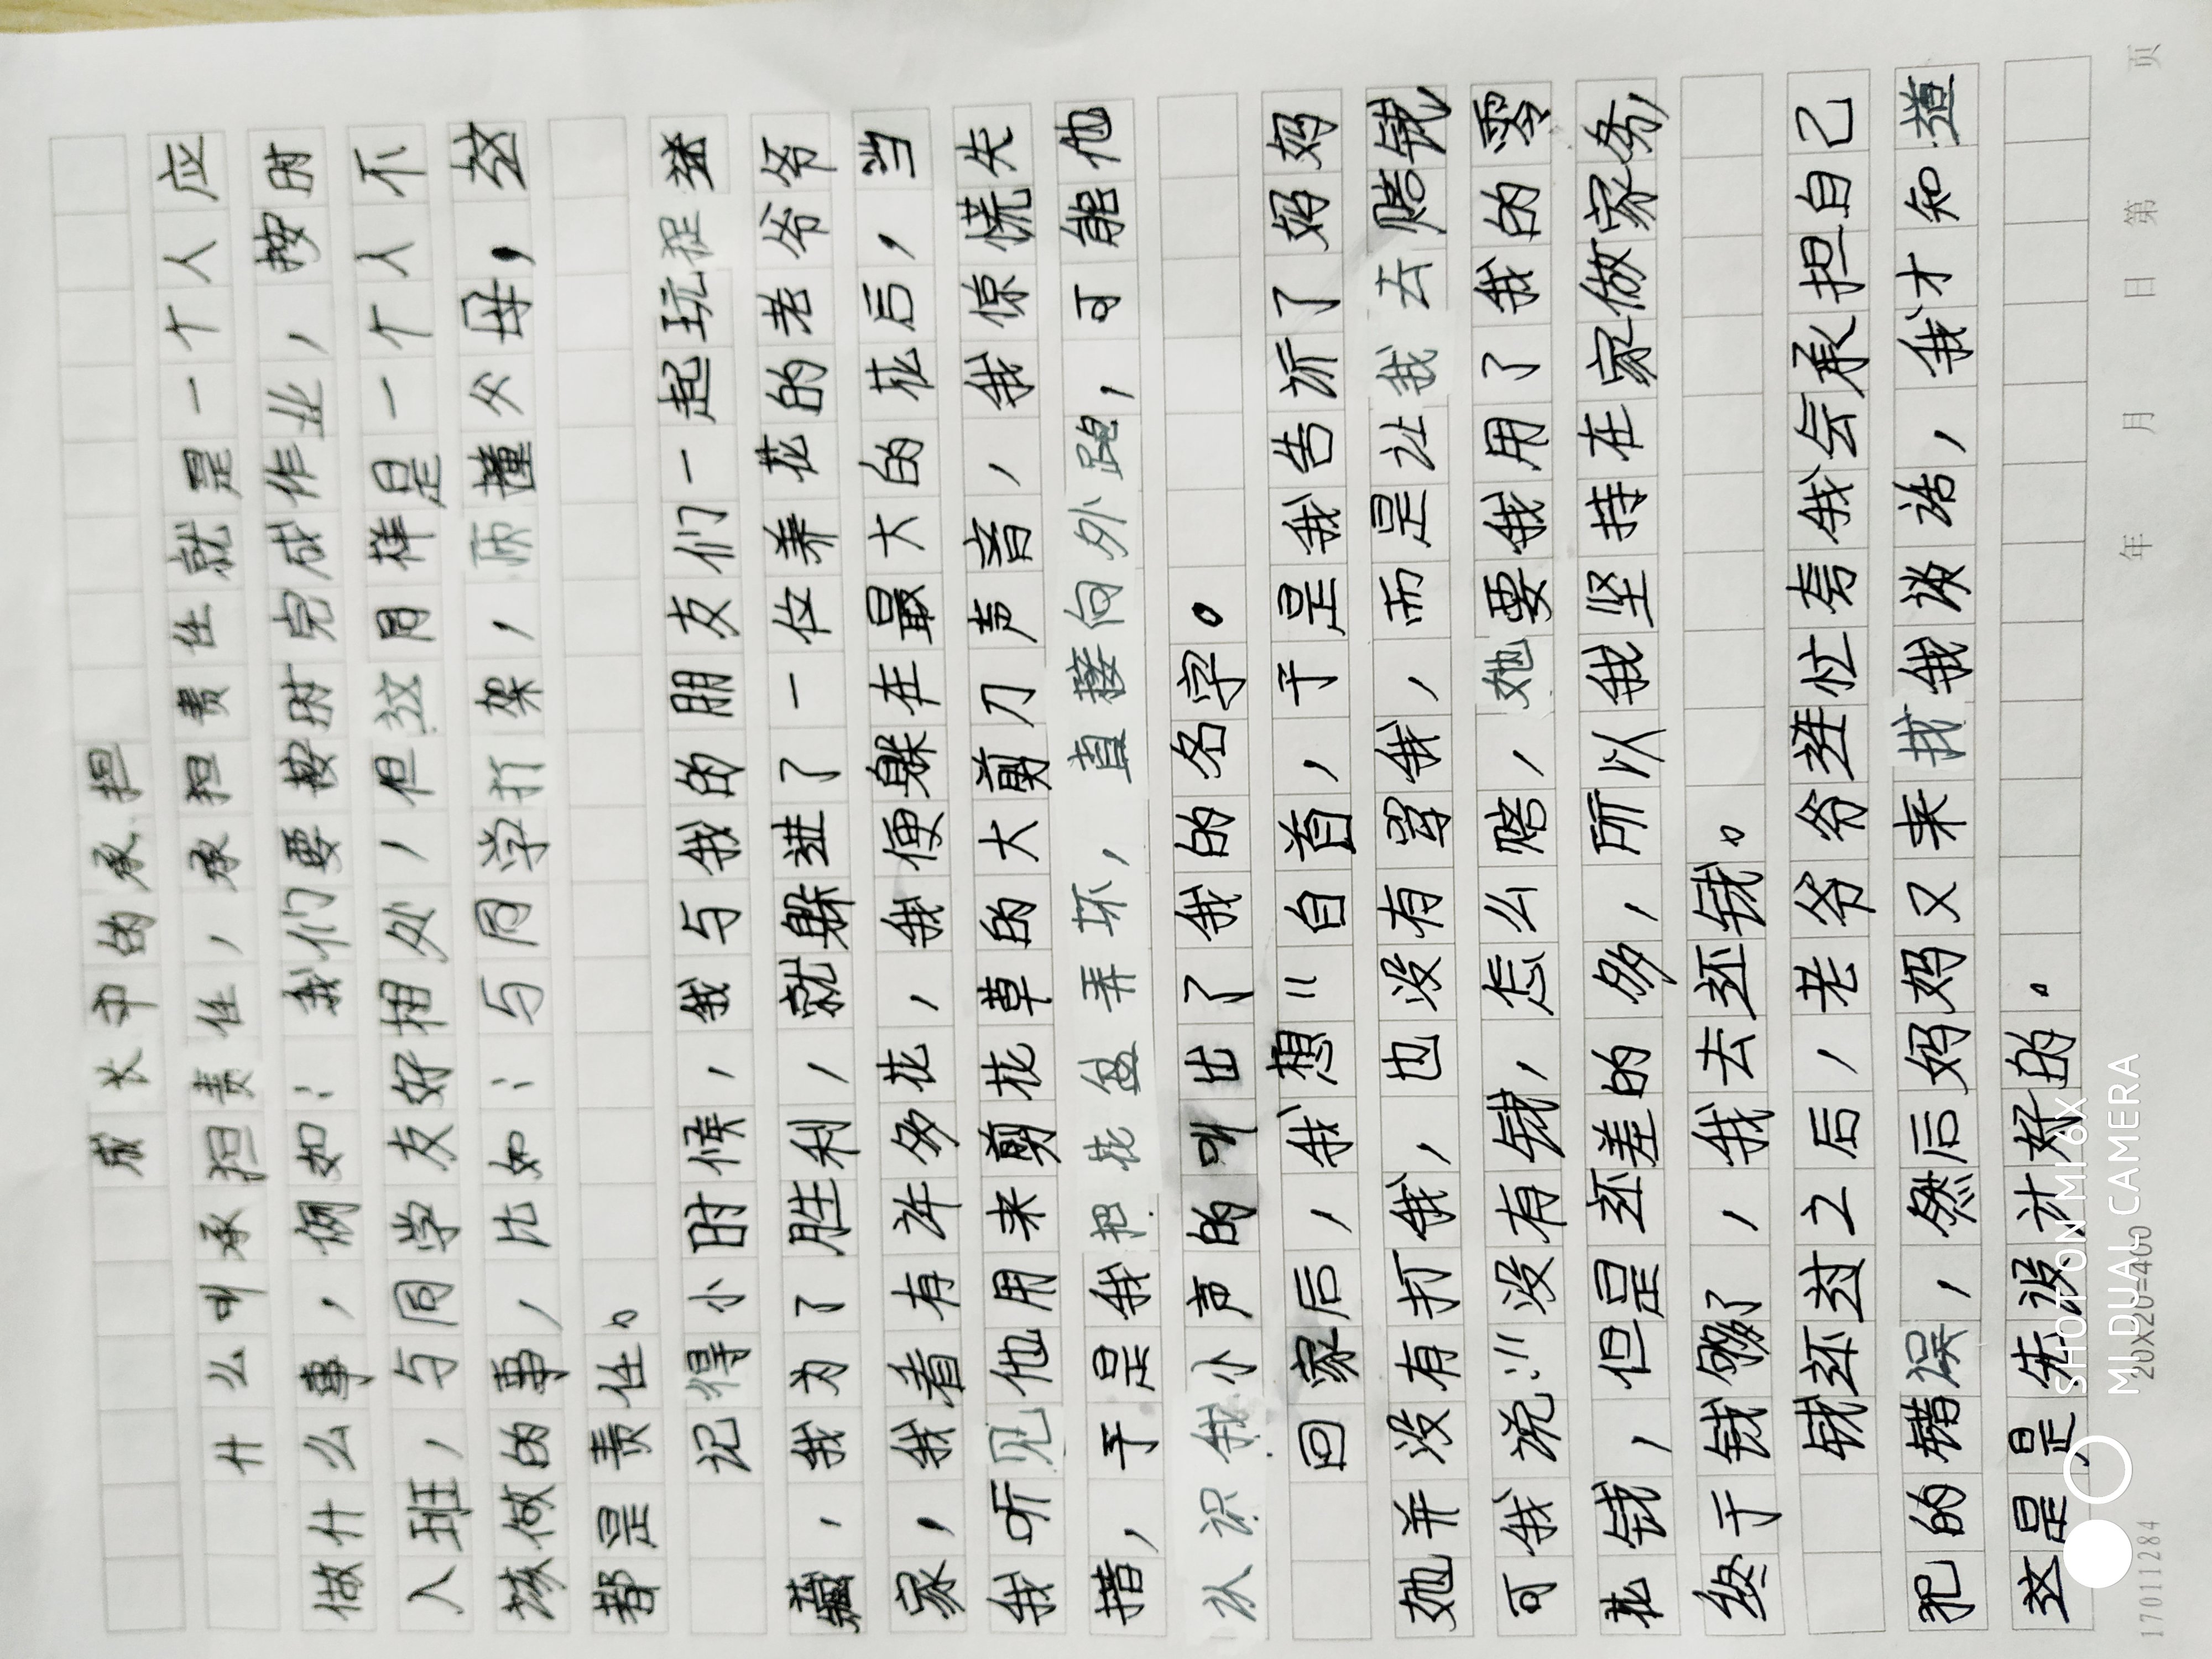 成长中的承担
什么叫承担责任，承担责任就是一个人应
做什么事，例如：我们要按时完成作业，按时
入班，与同学友好相处，但这同样是一个人不
该做的事，比如：与同学打架，顶撞父母，这
都是责任。
记得小时候，我与我的朋友们一起玩捉迷
藏，我为了胜利，就躲进了一位养花的老爷爷
家，我看有许多花，我便躲在最大的花后，当
我听见他用来剪花草的大剪刀声音，我惊慌失
措，于是我把花盆弄坏，直接向外跑，可能他
认识我小声的叫出了我的名字。
回家后，我想"自首，于是我告诉了妈妈
她并没有打我，也没有骂我，而是让我去赔钱，
可我说："没有钱，怎么赔，她要我用了我的零
花钱，但是还差的多，所以我坚持在家做家务，
终于钱够了，我去还钱。
钱还过之后，老爷爷连忙夸我会承担自己
犯的错误，然后妈妈又来找我谈话，我才知道
这是是先设计好的。
20X20=400
年 月 日 第 页
17011284
SHOT ON MI 6X
MI DUAL CAMERA